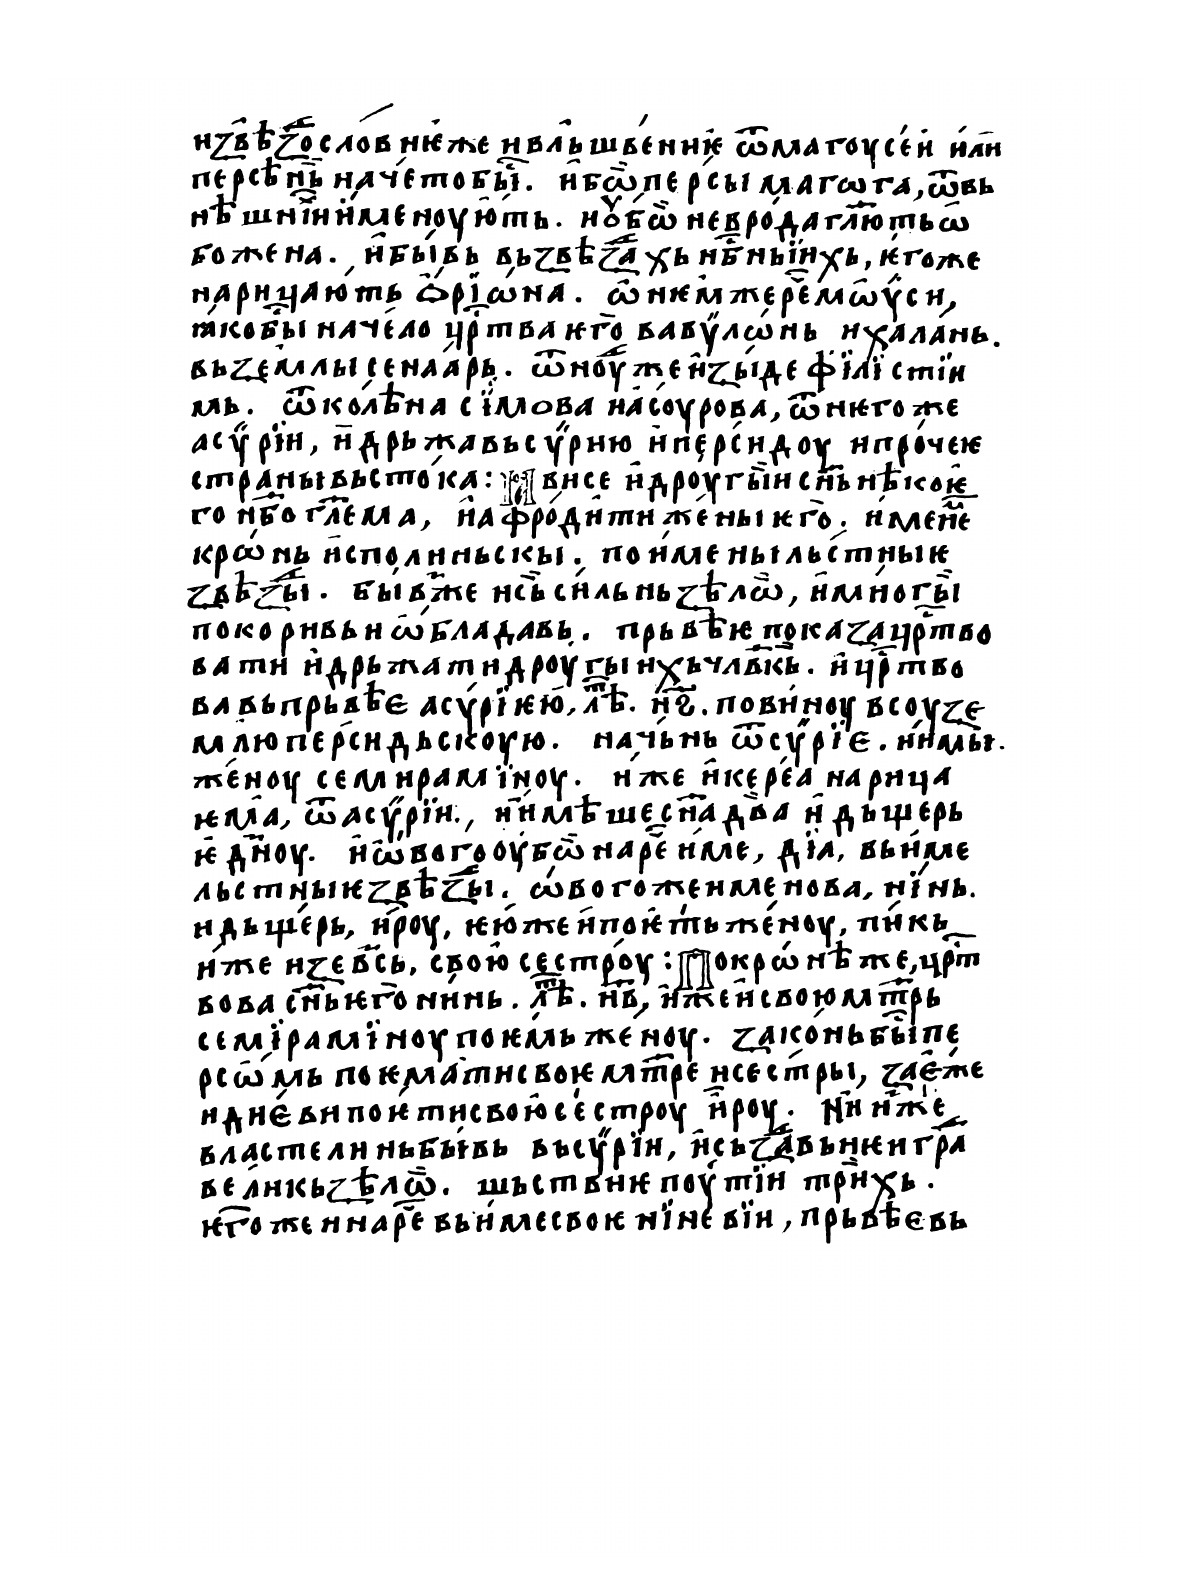 и звѣздословиѥже и вльшвенїиѥ ѿ магоусеи или
персѣнь начетобыⷭ. ибѡ персы магога, ѿвь
нѣшнїи именоують. ноубѡ неврода глють ѡ
божена. и бывь вь звѣздахь нбныихь, ѥгоже
нарицають ѻрїѡна. ѡ нѥмже реⷱ мѡѵси,
ꙗко бы начело црⷭтва ѥго вавѵлѡнь и халань.
вь земли сенаарь. ѿноудⷤе изыде фїлїстїи
мь. ѿ колѣна сїмова насоурова, ѿ нѥгоже
асѵрїи, и дрьжа вьсѵрию и персидоу и прочеѥ
страны вьстока: Пвисе и дроугыи снь нѣкоѥ
го нбо глема, и афродити жены ѥго. имене
крѡнь исполиньскы. по имены льстныѥ
звѣзды. бывже и сь сильнь зѣлѡ, и многыⷭ
покоривь и ѡбладавь. прьвѣѥ показа црⷭтво
вати и дрьжати дроугыихь члвкь. и црⷭтво
вавь прьвѣѥ асѵрїѥю, лѣⷮ. нг. повиноу всоу зе
млю персидьскоую. начьнь ѿ сѵрїѥ. и имы.
женоу семирамїноу. иже и кереа нарица
ѥма, ѿ асѵрїи., и имѣше сна два и дьщерь
ѥдноу. и ѡвого оубѡ нареⷱ име, дїа, вь име
льстныѥ звѣзды. ѡвогоже именова, нїнь.
и дьщерь, ироу, ѥюже и поѥть женоу, пикь
иже и зевсь, свою сестроу: По крѡнѣже, црⷭт
вова снь ѥго нинь. лѣⷮ. нв, иже и свою мтрь
семїрамїноу поѥмь женоу. законь бы пе
рсѡмь поѥмати своѥ мтре и сестры, занⷤеже
и дїеви поѥти свою сестроу ироу. Ни ижⷤе
властелинь бывь вь сѵрїи, и сьздавь ѥи граⷣ
великь зѣлѡ. шьствиѥ поутїи трихь.
ѥгоже и нареⷱ вь име своѥ нїневїи, прьвѣѥ вь